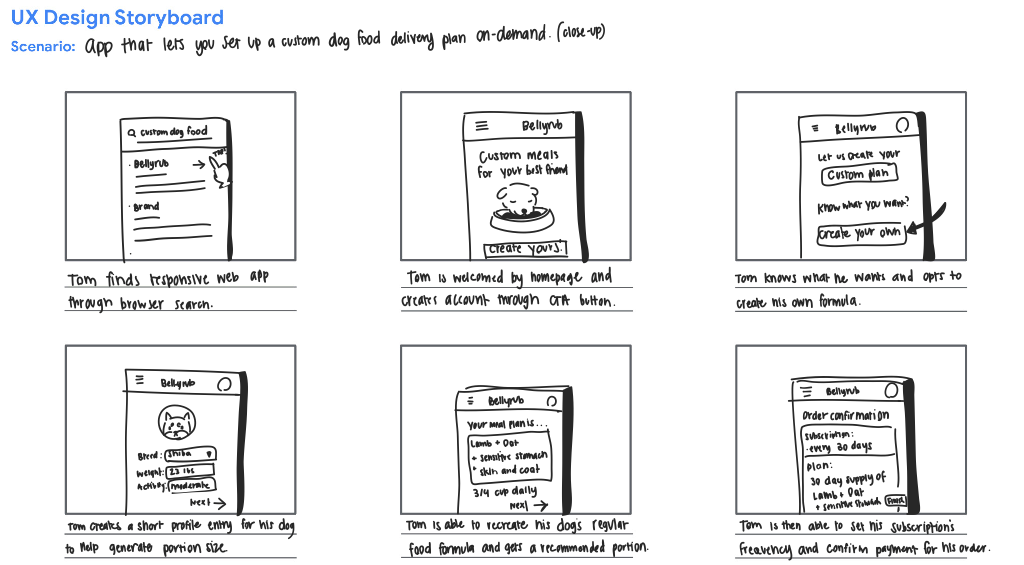 UX Design Storyboard
Scenario: App that lets you set up a custom dog food delivery plan on-demand. (close-up)
custom dog food
Bellyrub
Brand
Tom finds responsive web app
through browser search.
Bellyrub
Custom meals
for your best friend
Create yours!
Tom is welcomed by homepage and
creates account through CTA button.
Bellyrub
Let us create your
Custom plan
Know what you want?
Create your own
Tom knows what he wants and opts to
create his own formula.
Bellyrub
Breed: Shiba
Weight: 23 lbs
Activity: moderate
Next →
Tom creates a short profile entry for his dog
to help generate portion size
Bellyrub
Your meal plan is...
Lamb + Oat
+ sensitive stomach
* skin and coat
3/4 cup daily
Next →
Tom is able to recreate his dog's regular
food formula and gets a recommended portion.
Bellyrub
Order confirmation
Subscription:
- every 30 days
Plan:
30 day supply of
Lamb + Oat
+ sensitive stomach
Tom is then able to set his subscription's
frequency and confirm payment for his order.